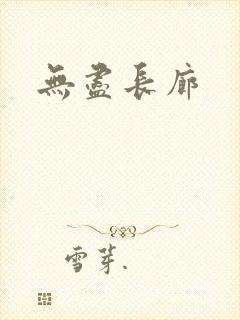 無盡長廊
雪芽.